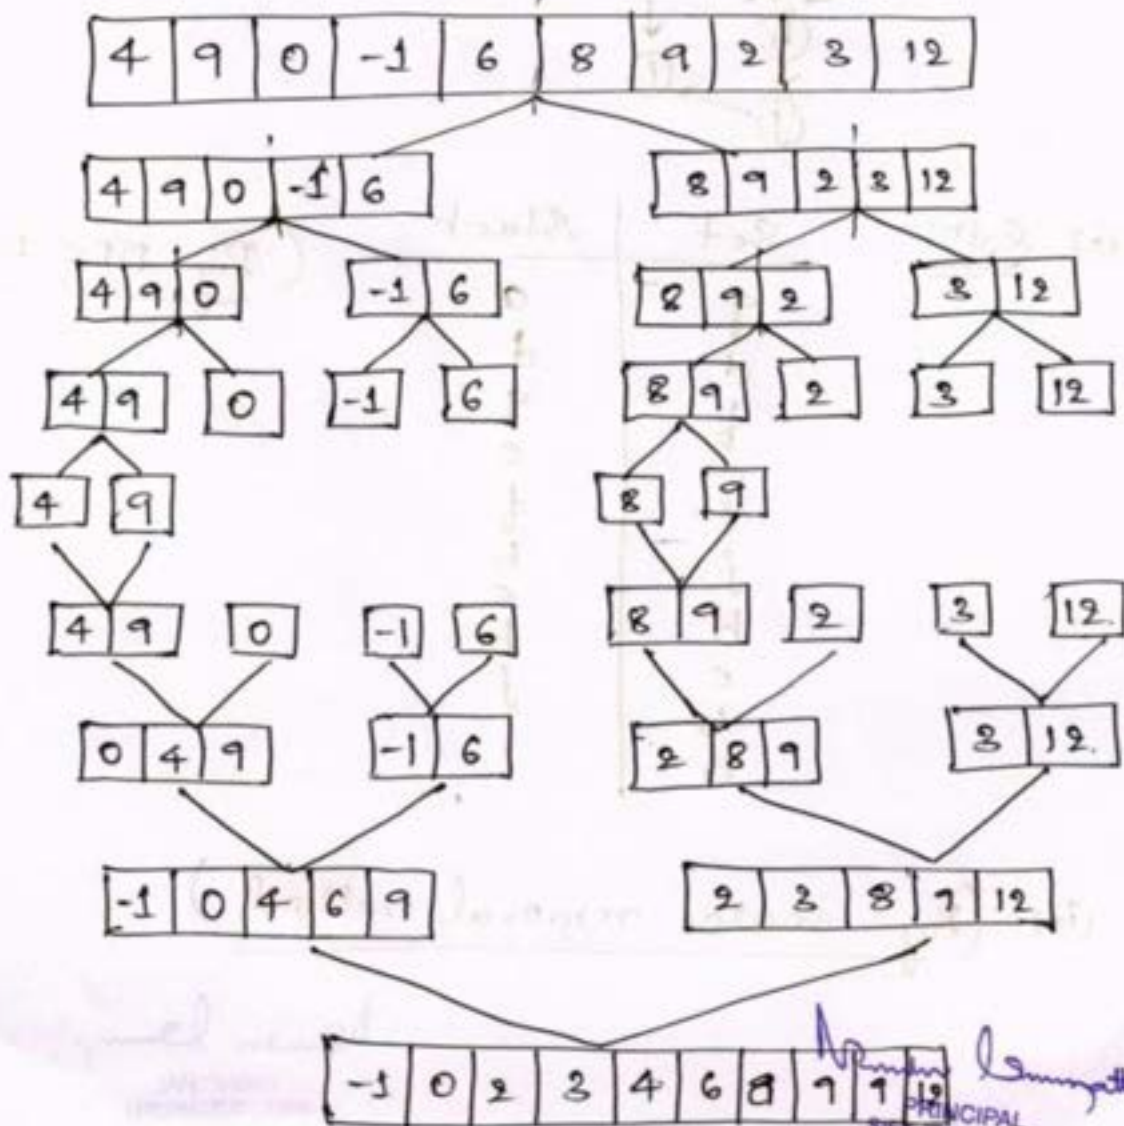 4 9 0 -1 6 8 9 2 3 12
4 9 0 -1 6 8 9 2 3 12
4 9 0 -1 6 8 9 2 3 12
4 9 0 -1 6 8 9 2 3 12
4 9 8 9
4 9 0 -1 6 8 9 2 3 12
0 4 9 -1 6 2 8 9 3 12
-1 0 4 6 9 2 3 8 9 12
-1 0 2 3 4 6 8 9 9 12
PRINCIPAL